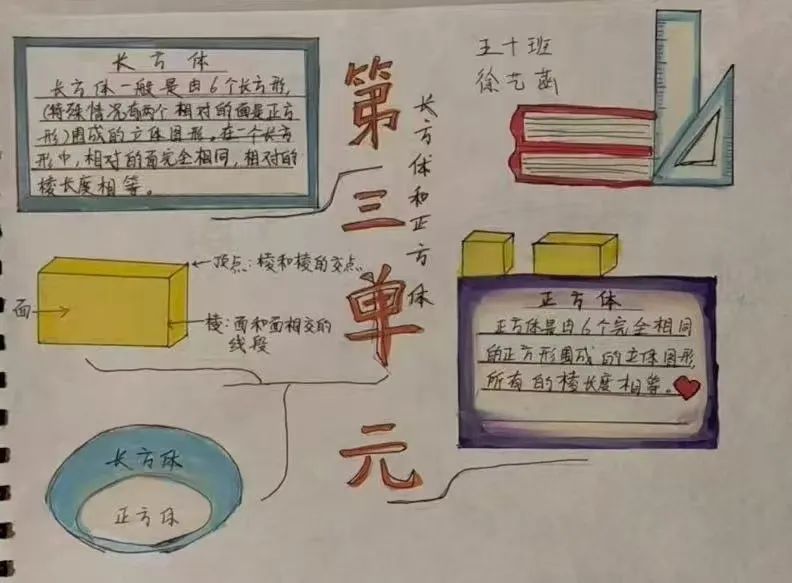 长方体
长方体一般是由6个长方形,
(特殊情况有两个相对的面是正方
形)围成的立体图形,在一个长方
形中,相对的面完全相同,相对的
棱长度相等。
第三单元
长方体和正方体
五十班
徐艺菡
顶点:棱和棱的交点。
面
棱:面和面相交的
线段
正方体
正方体是由6个完全相同
的正方形围成的立体图形,
所有的棱长度相等。
长方体
正方体